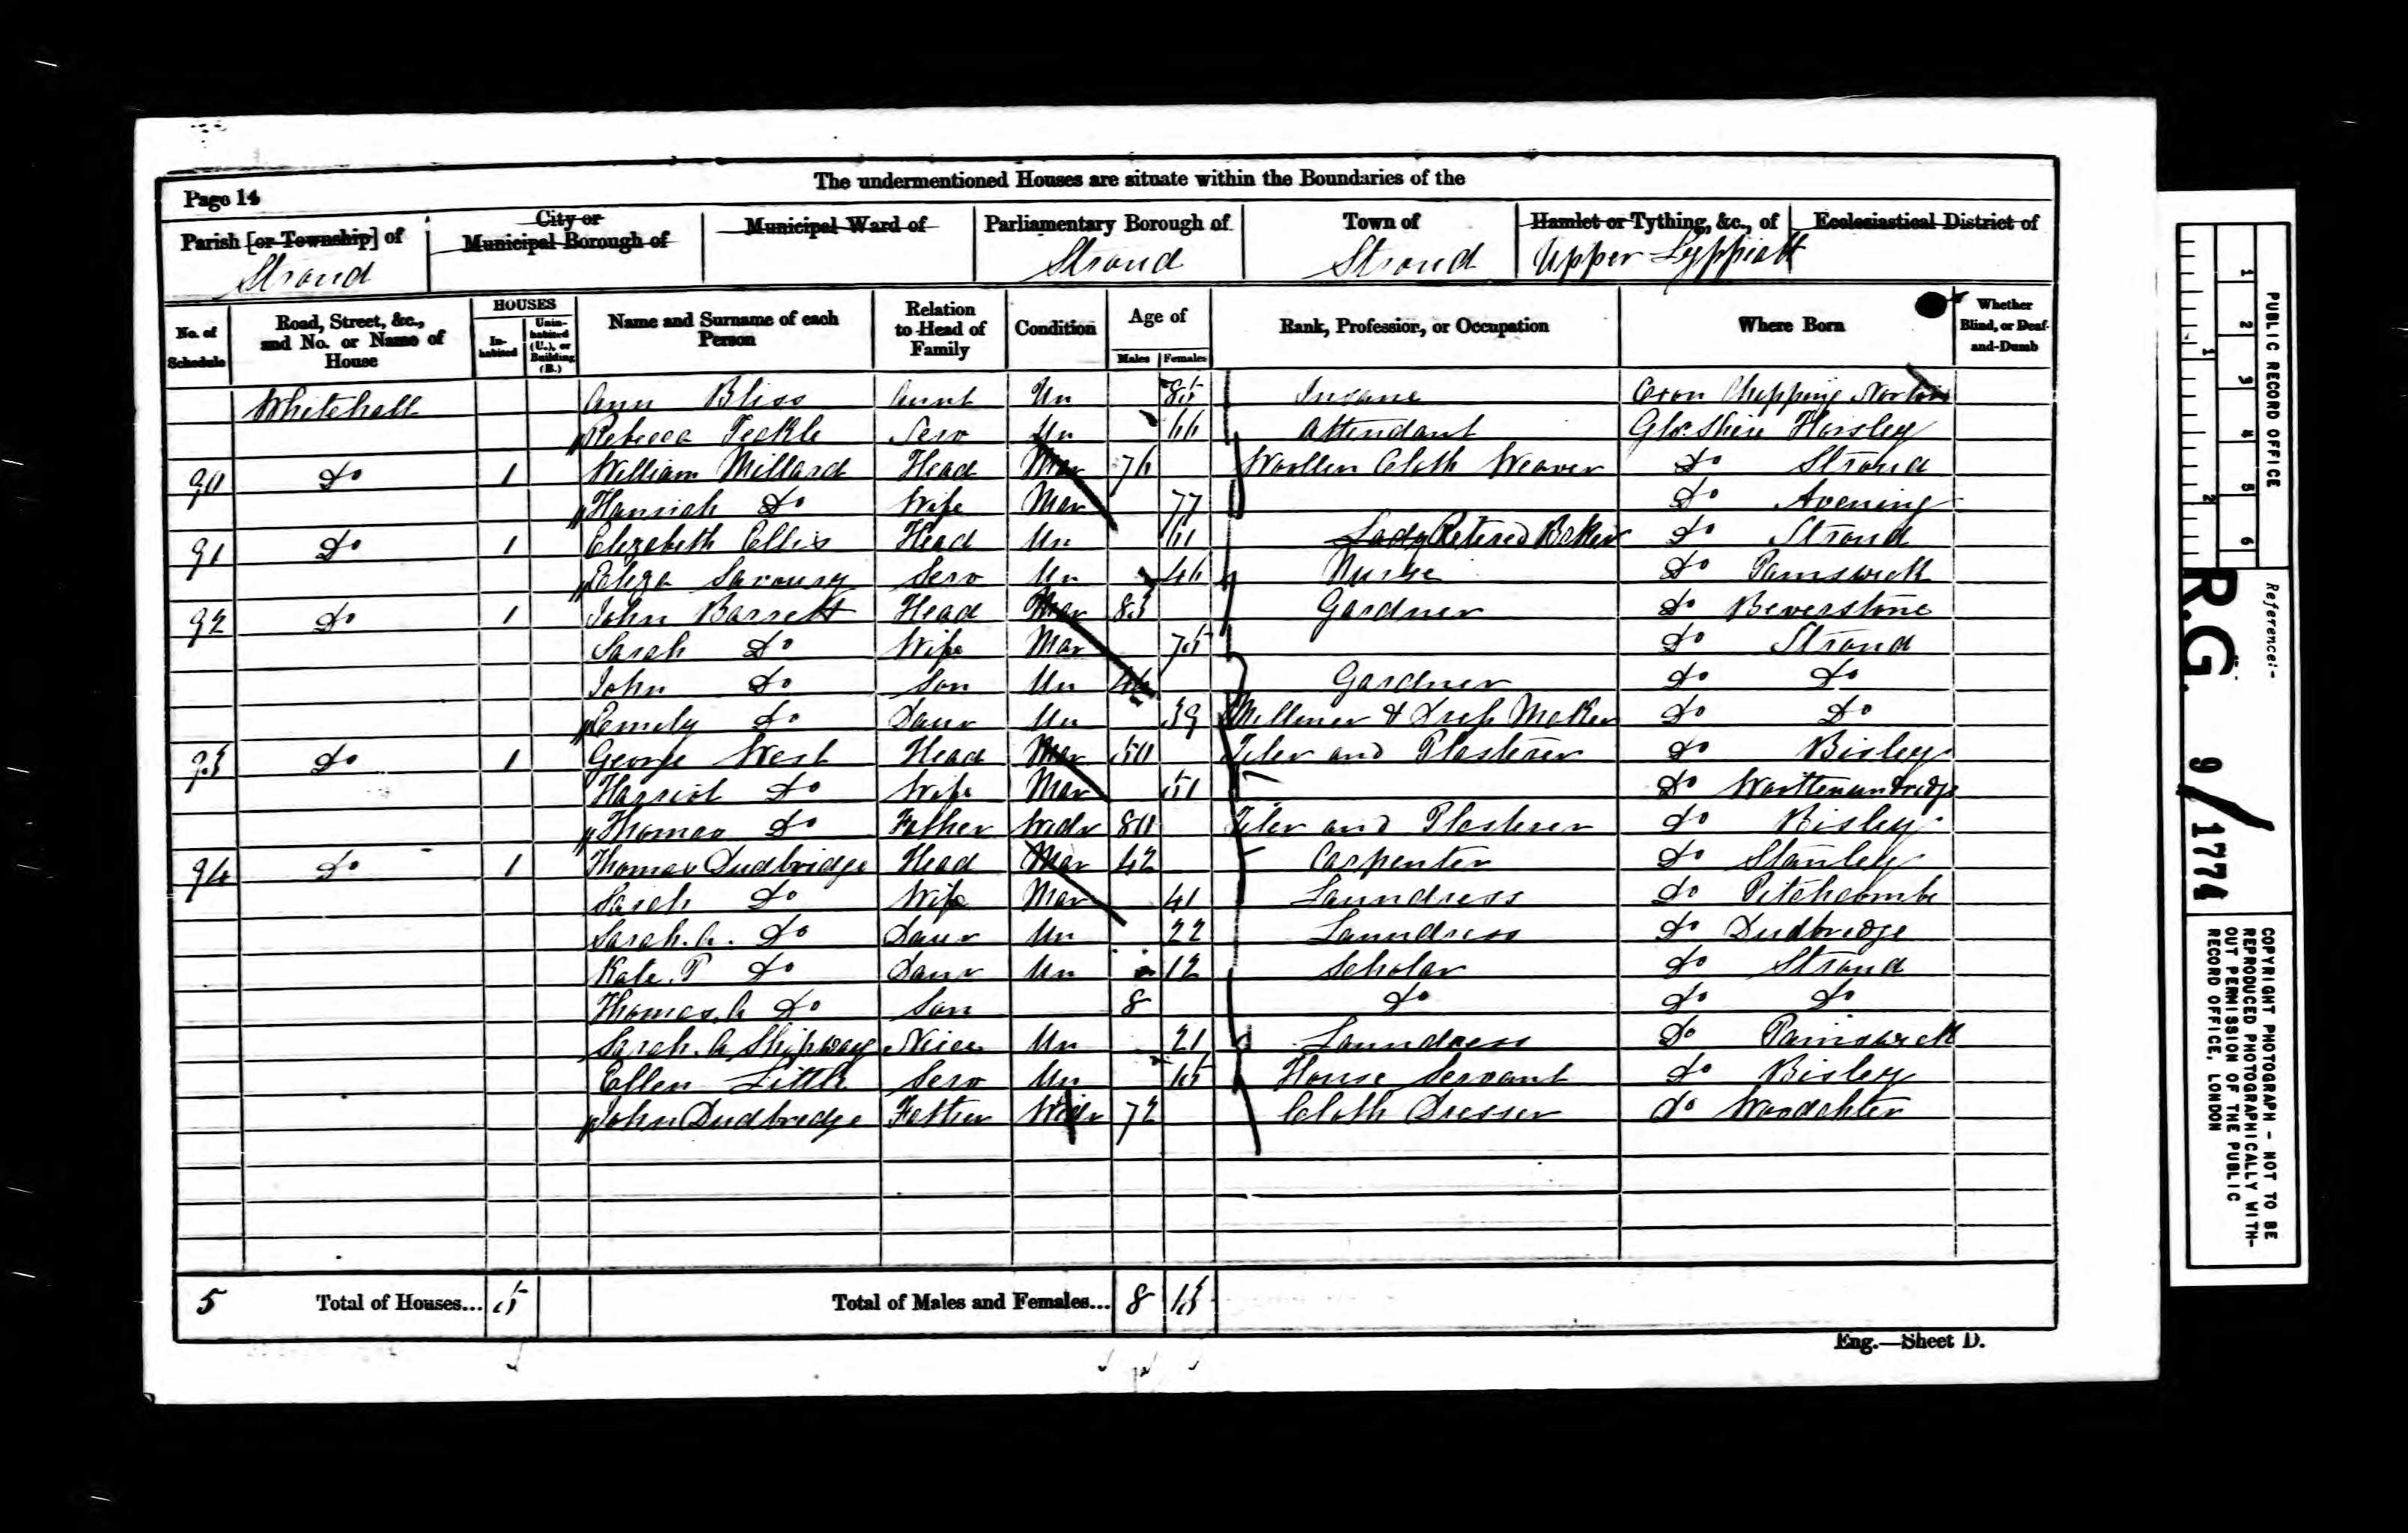 The undermentioned Houses are situate within the Boundaries of the
Page 14
Parish [or Township] of
Stroud
City or Municipal Borough of
Municipal Ward of
Parliamentary Borough of
Stroud
Town of
Stroud
Hamlet or Tything, &c., of
Upper Lyppiatt
Ecclesiastical District of
No. of Schedule
Road, Street, &c., and No. or Name of House
HOUSES
Inhabited
Uninhabited (U.), or Building (B.)
Name and Surname of each Person
Relation to Head of Family
Condition
Age of
Males Females
Rank, Profession, or Occupation
Where Born
Whether Blind, or Deaf-and-Dumb
Whitehall Ann Bliss Aunt Un 85 Insane Oxon Chipping Norton
Rebecca Teakle Serv Un 66 Attendant Glo.Shire Horsley
90 Do 1 William Millard Head Mar 76 Woollen Cloth Weaver Do Stroud
Hannah Do Wife Mar 77 Do Avening
91 Do 1 Elizabeth Ellis Head Un 61 Lady Retired Baker Do Stroud
Eliza Savoury Serv Un 46 Nurse Do Painswick
92 Do 1 John Barrett Head Mar 83 Gardner Do Beverstone
Sarah Do Wife Mar 75 Do Stroud
John Do Son Un Gardner Do Do
Emily Do Daur Un 39 Milliner & Dress Maker Do Do
93 Do 1 George West Head Mar 50 Tiler and Plasterer Do Bisley
Harriot Do Wife Mar 51 Do
Thomas Do Father Widr 80 Tiler and Plasterer Do Bisley
94 Do 1 Thomas Dudbridge Head Mar 42 Carpenter Do Stanley
Sarah Do Wife Mar 41 Laundress Do Pitchcombe
Sarah. A. Do Daur Un 22 Laundress Do Dudbridge
Kate. P Do Daur Un 12 Scholar Do Stroud
Thomas. A Do Son 8 Do Do Do
Sarah. A Shipway Niece Un 21 Laundress Do Painswick
Ellen Little Serv Un 15 House Servant Do Bisley
John Dudbridge Father Widr 72 Cloth Dresser Do Woodchter
5 Total of Houses... 5 Total of Males and Females... 8 13
Eng.—Sheet D.
PUBLIC RECORD OFFICE
1 2 3 4 5 6
1 2
Reference:-
R.G. 9/1774
COPYRIGHT PHOTOGRAPH - NOT TO BE
REPRODUCED PHOTOGRAPHICALLY WITH-
OUT PERMISSION OF THE PUBLIC
RECORD OFFICE, LONDON